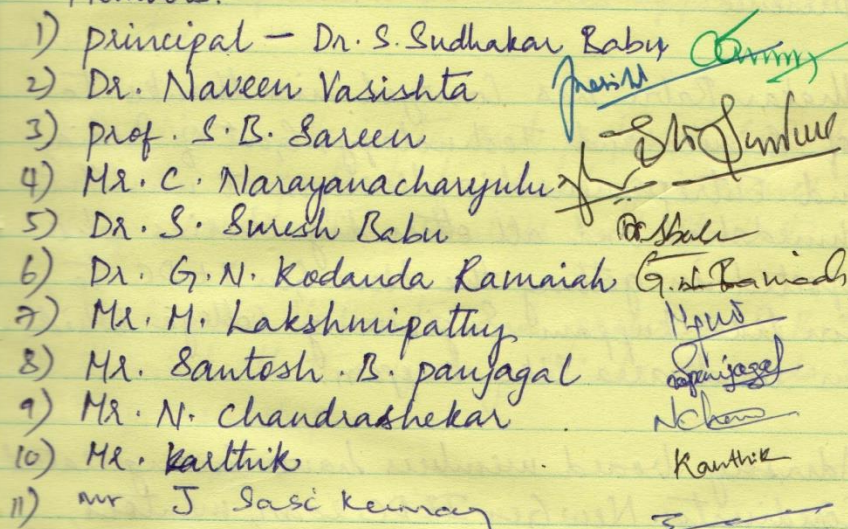 1) principal - Dr. S. Sudhakar Babu
2) Dr. Naveen Vasishta
3) prof. S. B. Sareen
4) Mr. C. Narayanacharyulu
5) Dr. S. Suresh Babu
6) Dr. G. N. Kodanda Ramaiah G.N. Ramaiah
7) Mr. M. Lakshmipathy
8) Mr. Santosh. B. panjagal
9) Mr. N. Chandrashekar
10) Mr. karthik Karthik
11) mr J Sasi Kumar